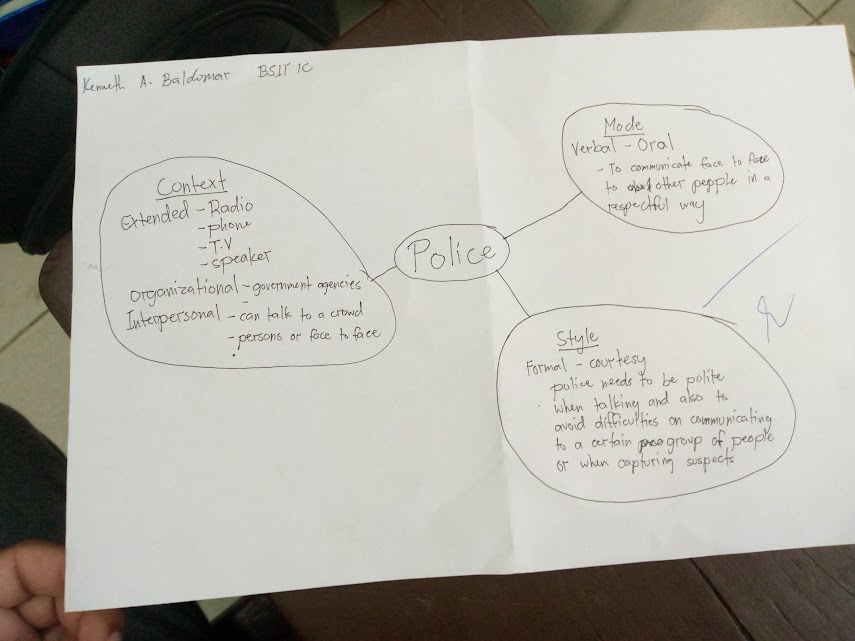 Kenneth A. Baldomar BSIT 1C
Context
Extended - Radio
- phone
- T.V
- speaker
Organizational - government agencies
-
Interpersonal - can talk to a crowd
- persons or face to face
Police
Mode
Verbal - Oral
- To communicate face to face
to other people in a
respectful way
Style
Formal - courtesy
police needs to be polite
when talking and also to
avoid difficulties on communicating
to a certain group of people
or when capturing suspects